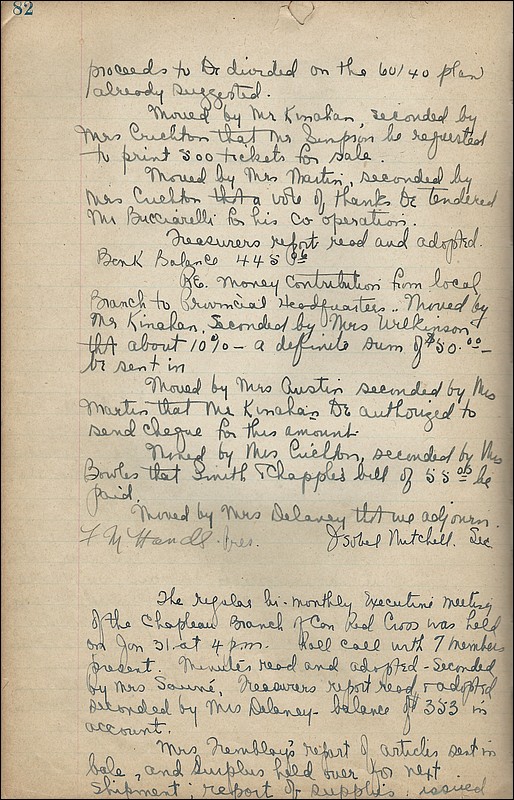 82
proceeds to be divided on the 60/40 plan
already suggested.
Moved by Mr Kinahan, seconded by
Mrs Crichton that Mr Simpson be requested
to print 500 tickets for sale.
Moved by Mrs Martin, seconded by
Mrs Crichton that a vote of thanks be tendered
Mr Bucciarelli for his co operation.
Treasurers report read and adopted.
Bank Balance 445
RE. Money Contribution from local
Branch to Provincial Headquarters.. Moved by
Mr Kinahan, seconded by Mrs Wilkinson
that about 10% - a definite sum of $50.00 -
be sent in
Moved by Mrs Austin seconded by Mrs
Martin that Mr Kinahan be authorized to
send cheque for this amount.
Moved by Mrs Crichton, seconded by Mrs
Bowles that Smith & Chapples bill of 55 be
paid.
Moved by Mrs Delaney that we adjourn.
Pres. Isobel Mitchell. Sec
The regular bi-monthly Executive meeting
of the Chapleau Branch of Can Red Cross was held
on Jan 31 at 4 p.m. Roll call with 7 members
present. Minutes read and adopted - seconded
by Mrs Treasurers report read & adopted
seconded by Mrs Delaney - balance of $353 in
account.
Mrs Tremblay's report of articles sent in
bale, and surplus held over for next
shipment; report of supplies issued